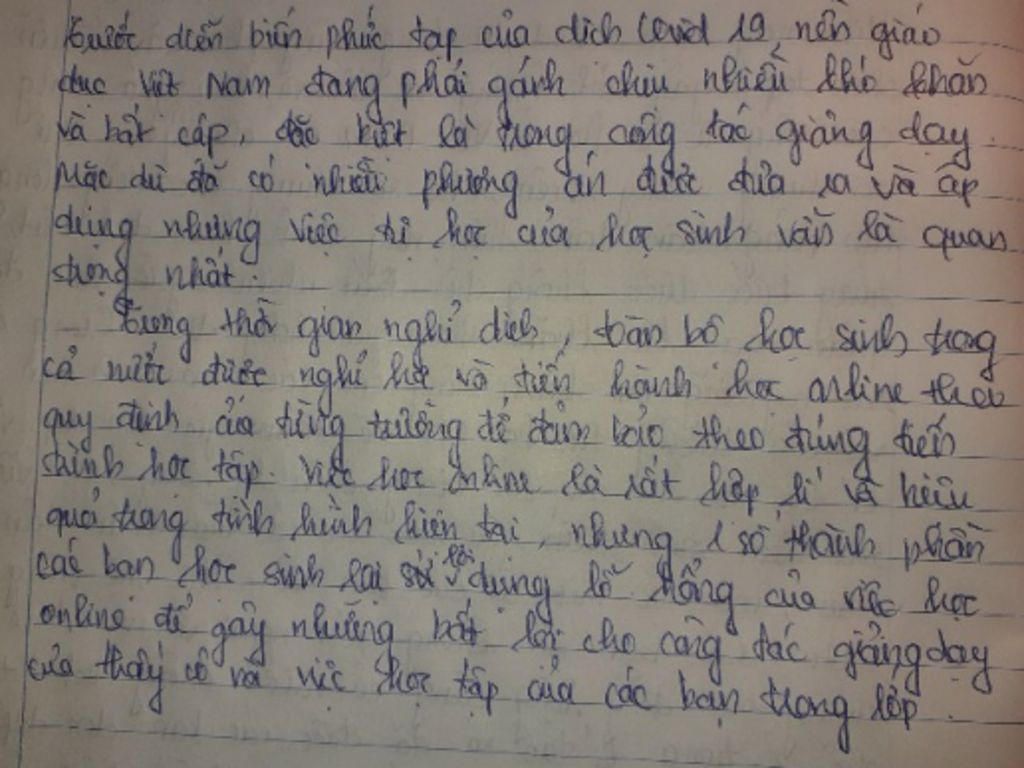 Trước diễn biến phức tạp của dịch Covid 19, nền giáo
dục Việt Nam đang phải gánh chịu nhiều khó khăn
và bất cập, đặc biệt là trong công tác giảng dạy.
Mặc dù đã có nhiều phương án được đưa ra và áp
dụng nhưng việc tự học của học sinh vẫn là quan
trọng nhất.
Trong thời gian nghỉ dịch, toàn bộ học sinh trong
cả nước được nghỉ học và tiến hành học online theo
quy định của từng trường để đảm bảo theo đúng tiến
trình học tập. Việc học online là rất hợp lí và hiệu
quả trong tình hình hiện tại, nhưng 1 số thành phần
các bạn học sinh lại sử lợi dụng lỗ hổng của việc học
online để gây những bất lợi cho công tác giảng dạy
của thầy cô và việc học tập của các bạn trong lớp.